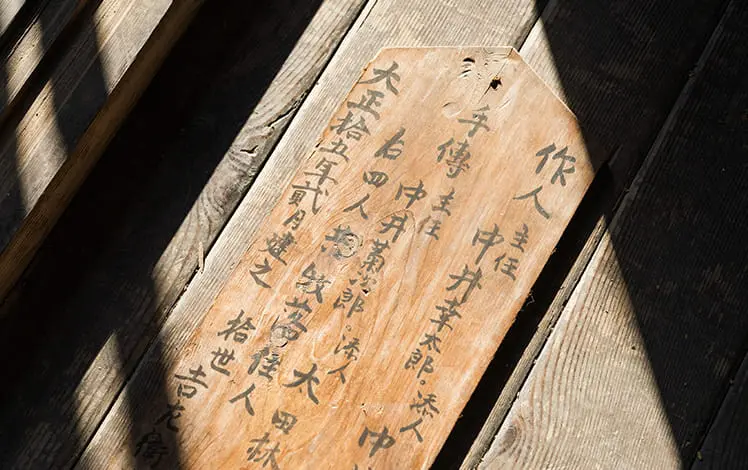 作人 主任 中井幸太郎。添人 中
手傳 主任 中井菊次郎。添人 大田林
右四人共 落住人
大正拾五年貳月建之 拾世 吉左衛